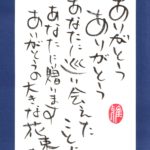 ありがとう
ありがとう
あなたに巡り会えたこと
あなたに贈ります
ありがとうの大きな花束